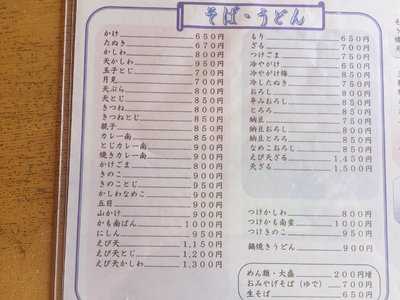 そば・うどん
かけ 650円
たぬき 670円
かしわ 800円
天かしわ 950円
玉子とじ 700円
月見 700円
天ぷら 800円
天とじ 850円
きつね 800円
きつねとじ 850円
親子 850円
カレー南 850円
とじカレー南 900円
焼きカレー南 900円
かけごま 800円
きのこ 900円
きのことじ 950円
かしわなめこ 900円
五目 900円
山かけ 900円
かも南ばん 1000円
にしん 900円
えび天 1,150円
えび天とじ 1,200円
えび天かしわ 1,300円
もり 650円
ざる 700円
つけごま 750円
冷やがけ 650円
冷やがけ梅
冷したぬき 750円
おろし 800円
辛みおろし
とろろ
納豆 750円
納豆おろし
納豆とろろ
なめこおろし 850円
えび天ざる 1,450円
天ざる 1,500円
つけかしわ 800円
つけかも南蛮 1000円
つけきのこ 950円
鍋焼きうどん 900円
めん類・大盛 200円増
おみやげそば(ゆで) 700円
生そば 650円